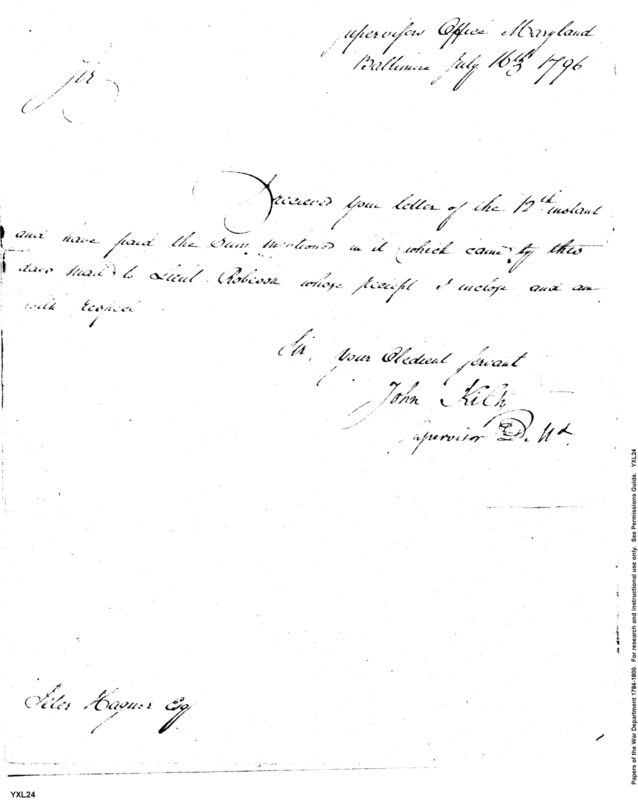 Supervisors Office Maryland
Baltimore July 16th 1796
Sir
I received your letter of the 12th instant
and have paid the Sum mentioned in it (which came by this
days mail) to Lieut. Robeson whose receipt I inclose and am
with respect
Sir, your Obedient servant
John Kilty
Supervisor D. Md.
Peter Hagner Esq
YXL24
Papers of the War Department 1784-1800. For research and instructional use only. See Permissions Guide. YXL24